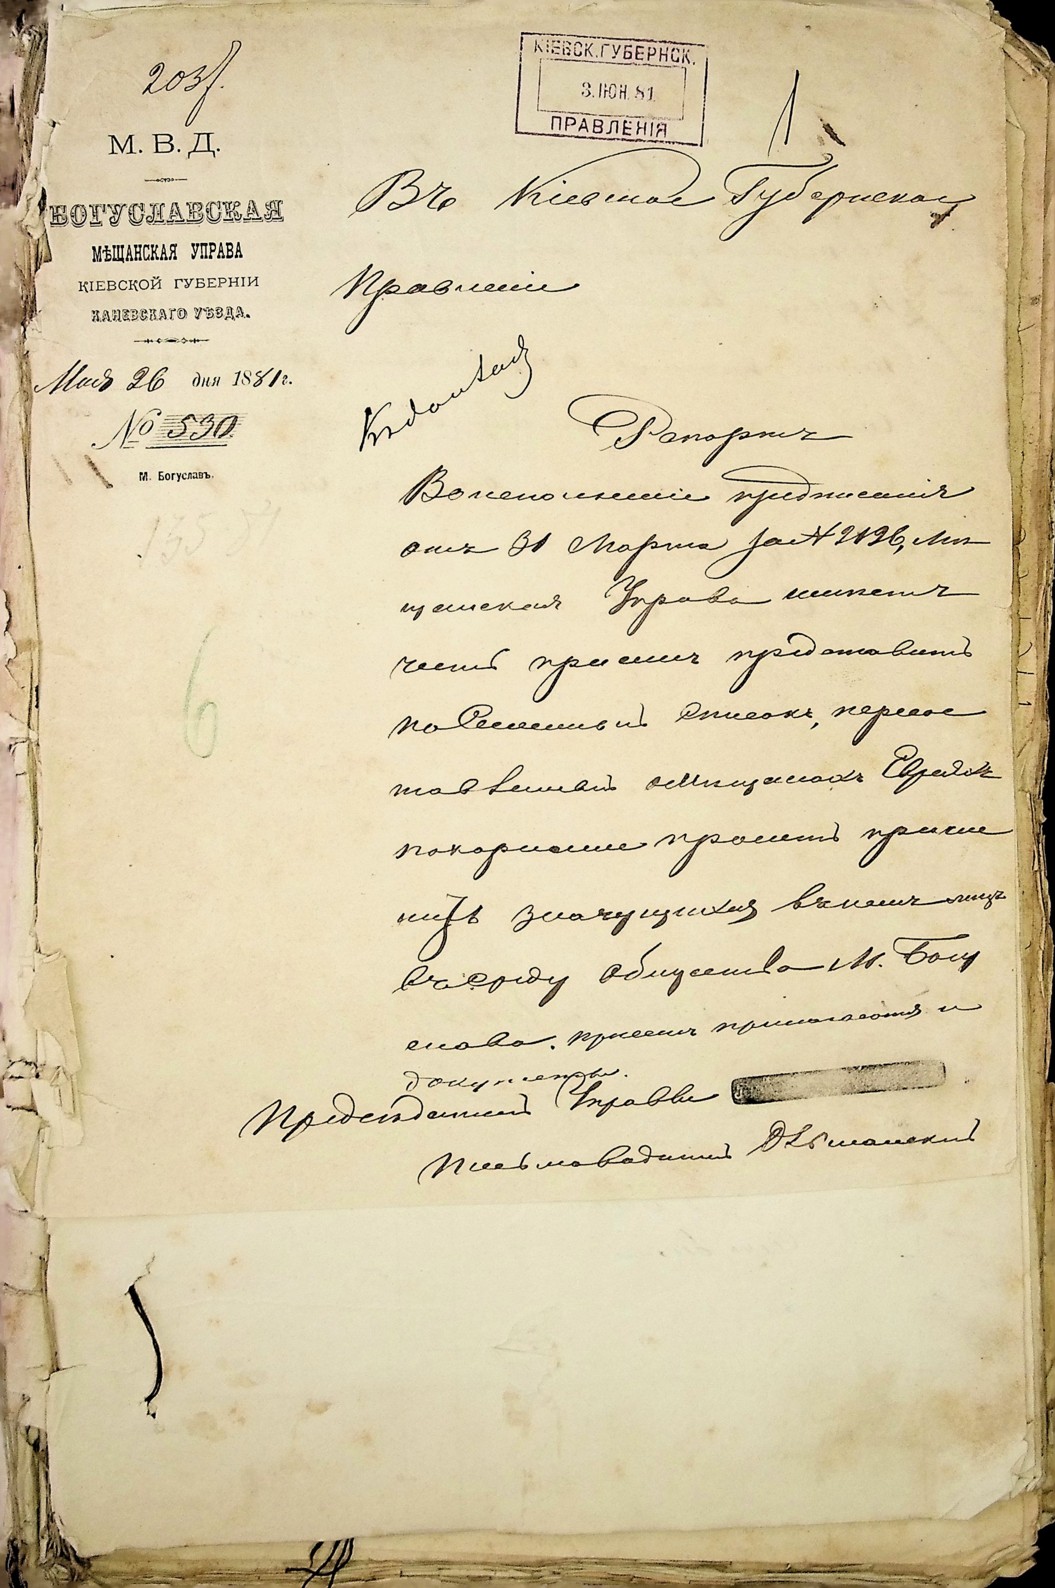 203
М. В. Д.
БОГУСЛАВСКАЯ
МѢЩАНСКАЯ УПРАВА
КІЕВСКОЙ ГУБЕРНІИ
КАНЕВСКАГО УѢЗДА.
Мая 26 дня 1881 г.
№ 530
М. Богуславъ.
КІЕВСК. ГУБЕРНСК.
3. ІЮН. 81
ПРАВЛЕНІЯ
1
Въ Кіевское Губернское
Правленіе
Рапортъ
Во исполненіе предписанія
отъ 31 Марта за № 2126, Мѣ
щанская Управа имѣетъ
честь при семъ представить
посемейный списокъ,
о мѣщанахъ Евреяхъ
покорнѣйше проситъ причи
слить значущихся въ немъ лицъ
въ среду общества М. Богу
слава. при семъ прилагаются и
документы.
Предсѣдатель Управы
Письмоводитель
6